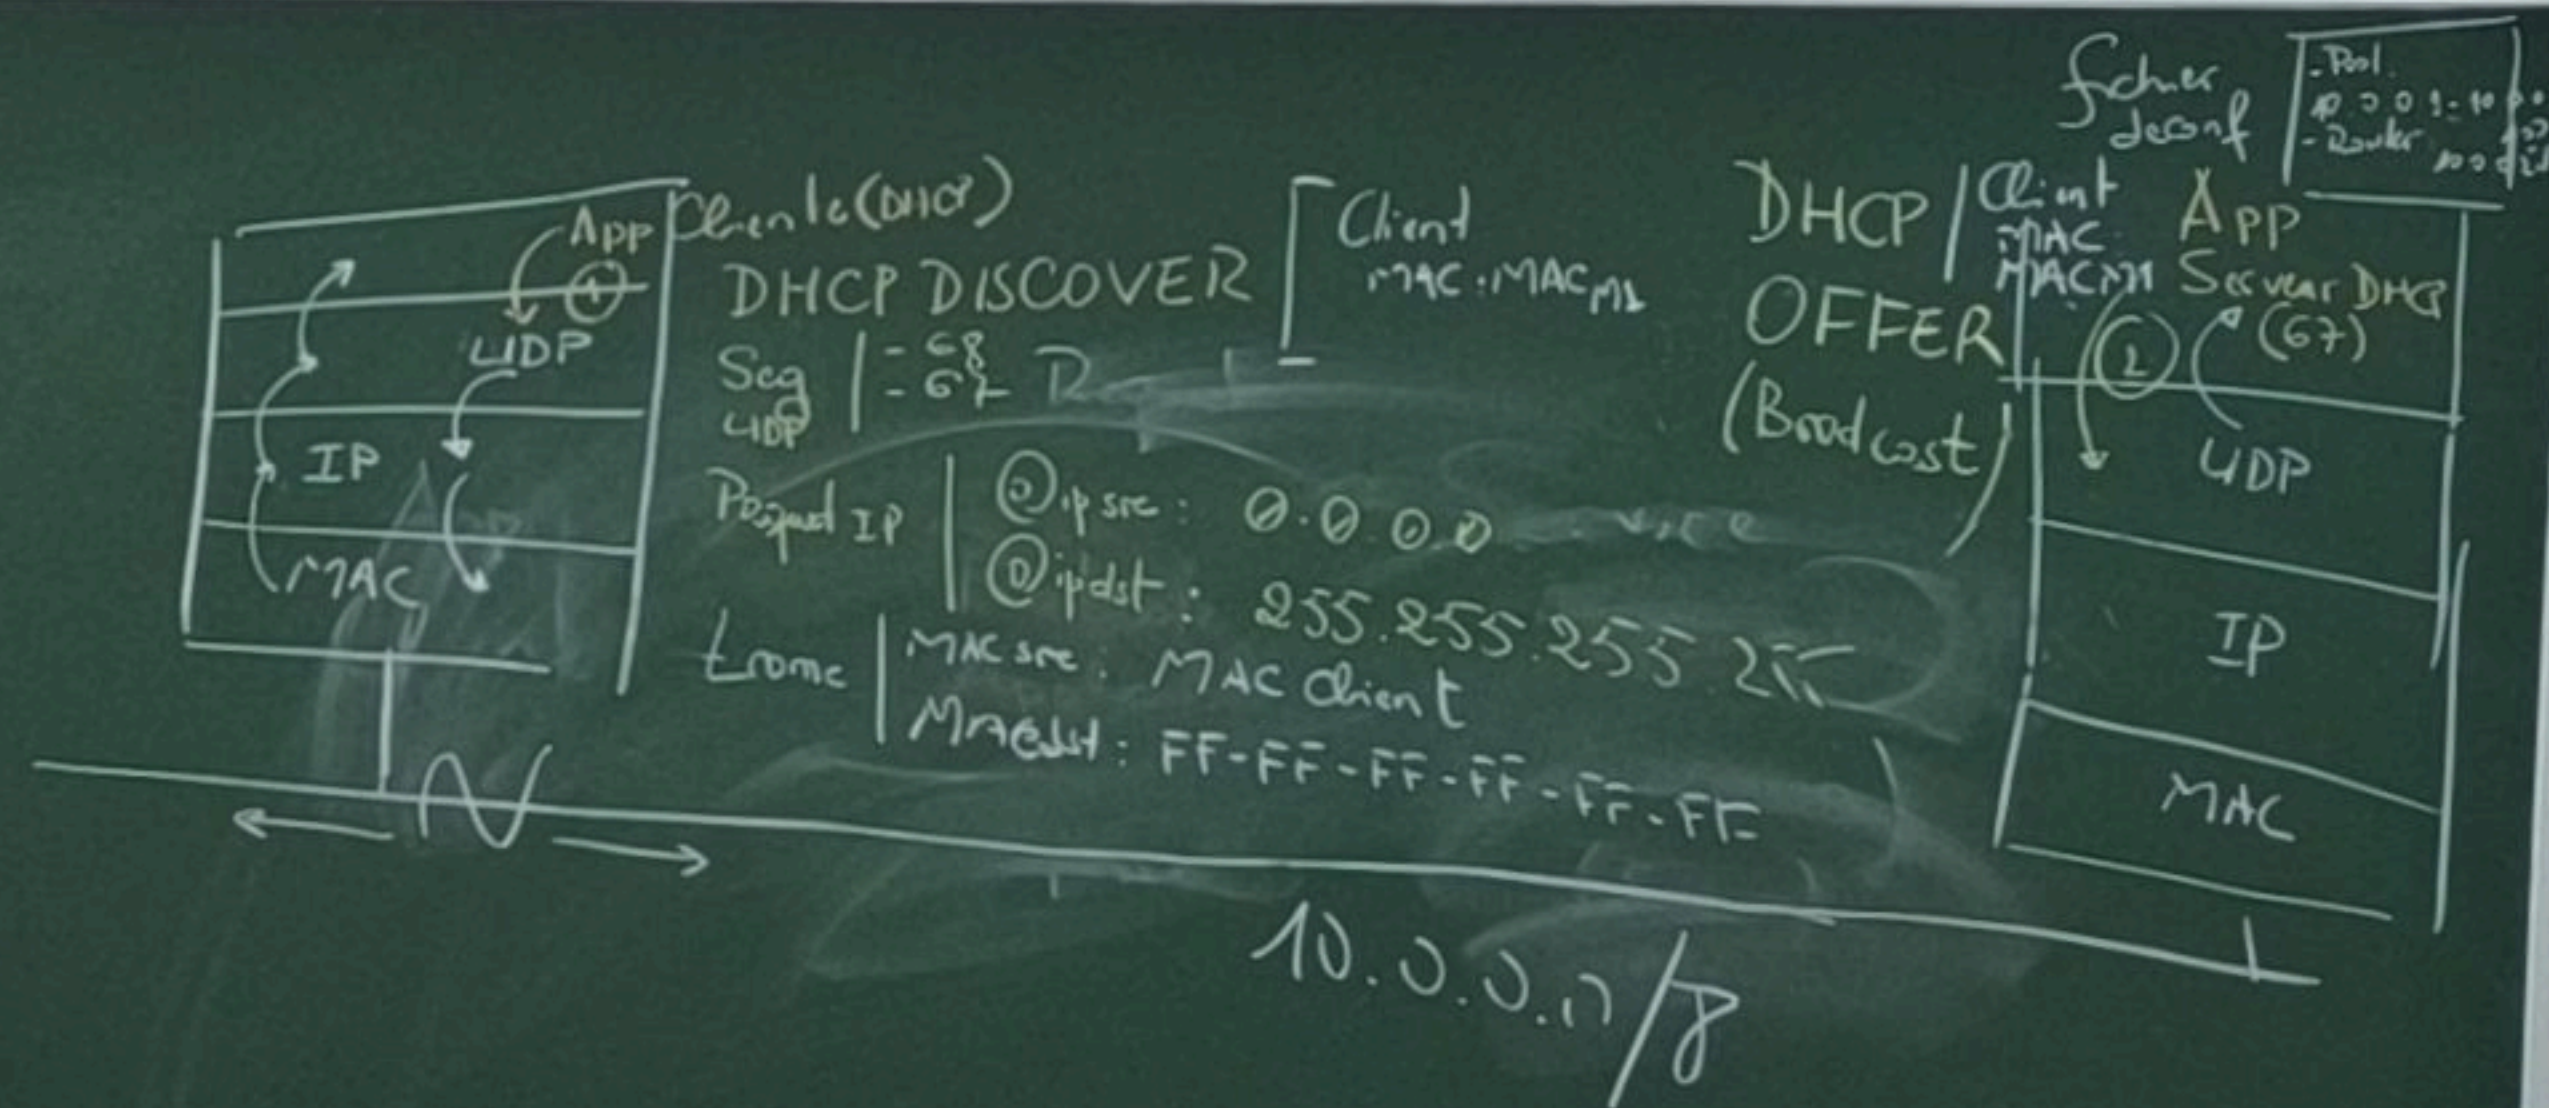 App Cliente (DHCP)
①
UDP
IP
MAC
DHCP DISCOVER
Client
MAC : MAC M1
Seg UDP
- 68
- 67
Paquet IP
@ip src : 0.0.0.0
@ip dst : 255.255.255.255
trame
MAC src : MAC Client
MAC dst : FF-FF-FF-FF-FF-FF
10.0.0.0/8
DHCP
OFFER
(Broadcast)
Client
MAC
MAC M1
fichier
de conf
- Pool
- Router
App
Serveur DHCP
(67)
②
UDP
IP
MAC